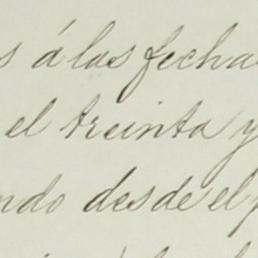 s á las fecha
el treinta y
ndo desde el p